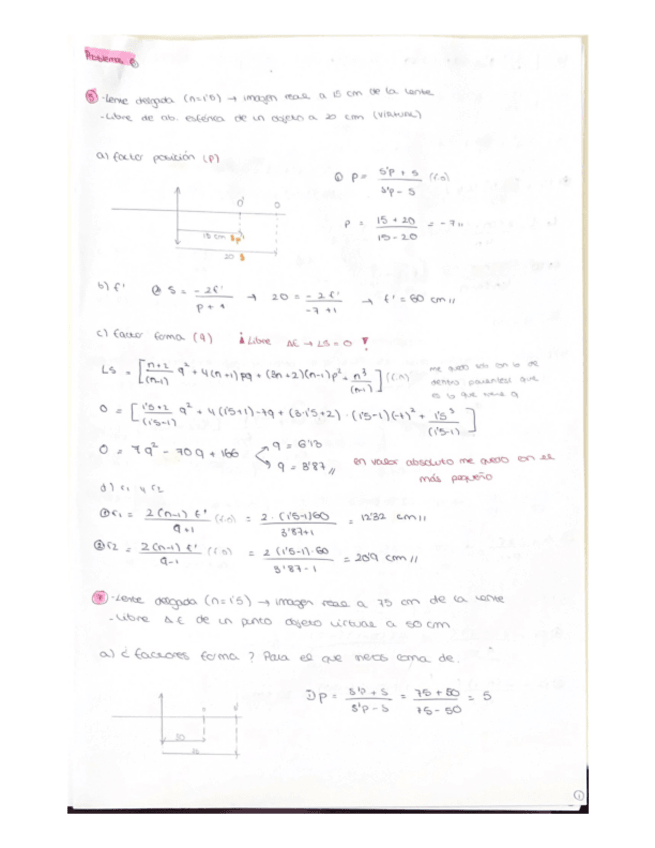 Problemas
⑤ -Lente delgada (n=1'5) → imagen real a 15 cm de la lente
-Libre de ab. esférica de un objeto a 20 cm (VIRTUAL)
a) factor posición (P)
① P = s'p + s / s'p - s
P = 15 + 20 / 15 - 20 = -7 //
O' O
15 cm s'p
20 s
b) f' ② s = -2f' / p + 1 → 20 = -2f' / -7 + 1 → f' = 60 cm //
c) factor forma (q) ¡Libre ΔE → LS = 0!
LS = [ n+2 / (n-1) q² + 4(n+1)pq + (3n+2)(n-1)p² + n³ / (n-1) ]
me quedo solo con lo de
dentro paréntesis que
es lo que tiene q
0 = [ 1'5+2 / (1'5-1) q² + 4(1'5+1)·-7q + (3·1'5+2)·(1'5-1)(-7)² + 1'5³ / (1'5-1) ]
0 = 7q² - 70q + 166 q = 6'13
q = 3'87 //
en valor absoluto me quedo con el
más pequeño
d) r₁ y r₂
① r₁ = 2(n-1) f' / q+1 = 2·(1'5-1)60 / 3'87+1 = 12'32 cm //
② r₂ = 2(n-1) f' / q-1 = 2(1'5-1)·60 / 3'87-1 = 20'9 cm //
⑦ -Lente delgada (n=1'5) → imagen real a 75 cm de la lente
-Libre ΔE de un punto objeto virtual a 50 cm
a) ¿factores forma? Para el que
① P = s'p + s / s'p - s = 75 + 50 / 75 - 50 = 5
50
1